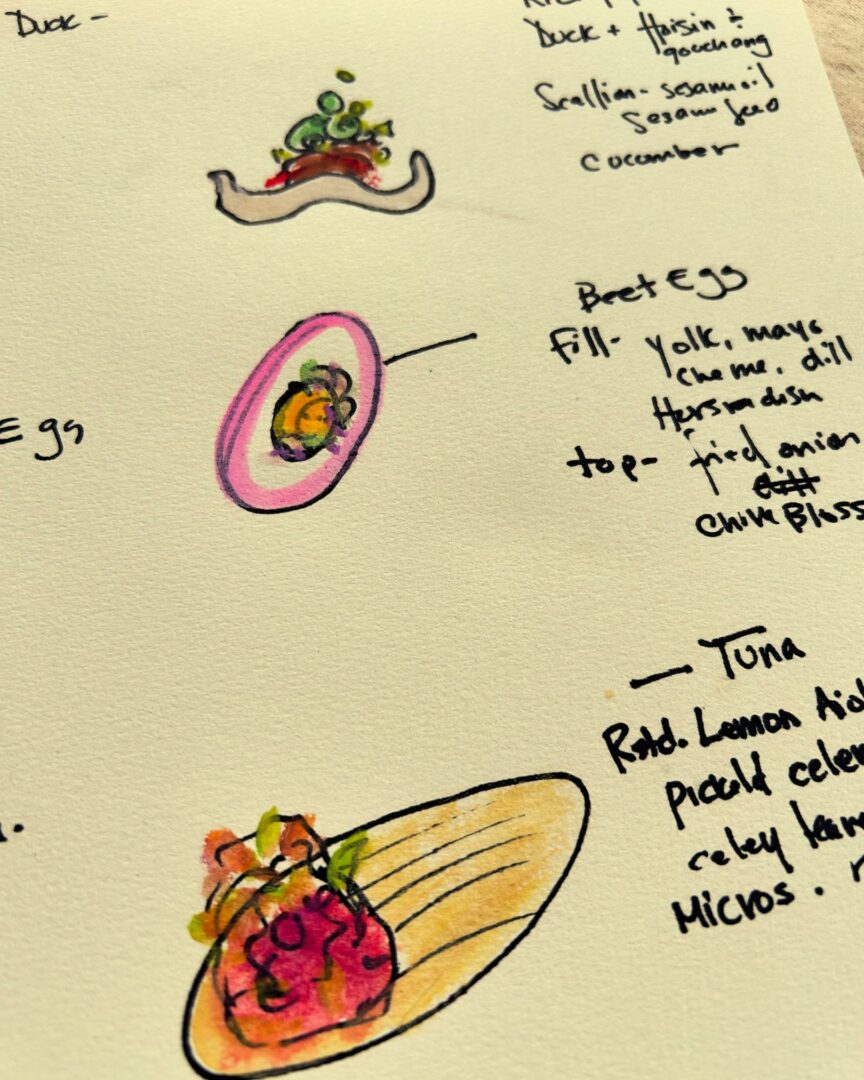 Duck -
Duck + Hoisin &
gochang
Scallion - sesame oil
Sesame seed
cucumber
Beet Egg
Fill - Yolk, mayo
creme, dill
Horsradish
Egg
top - fried onion
dill
Chive Bloss
— Tuna
Rstd. Lemon Aio
Pickld celer
celey
Micros.